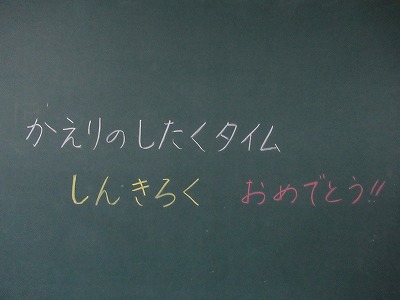 かえりのしたくタイム
しんきろく おめでとう!!